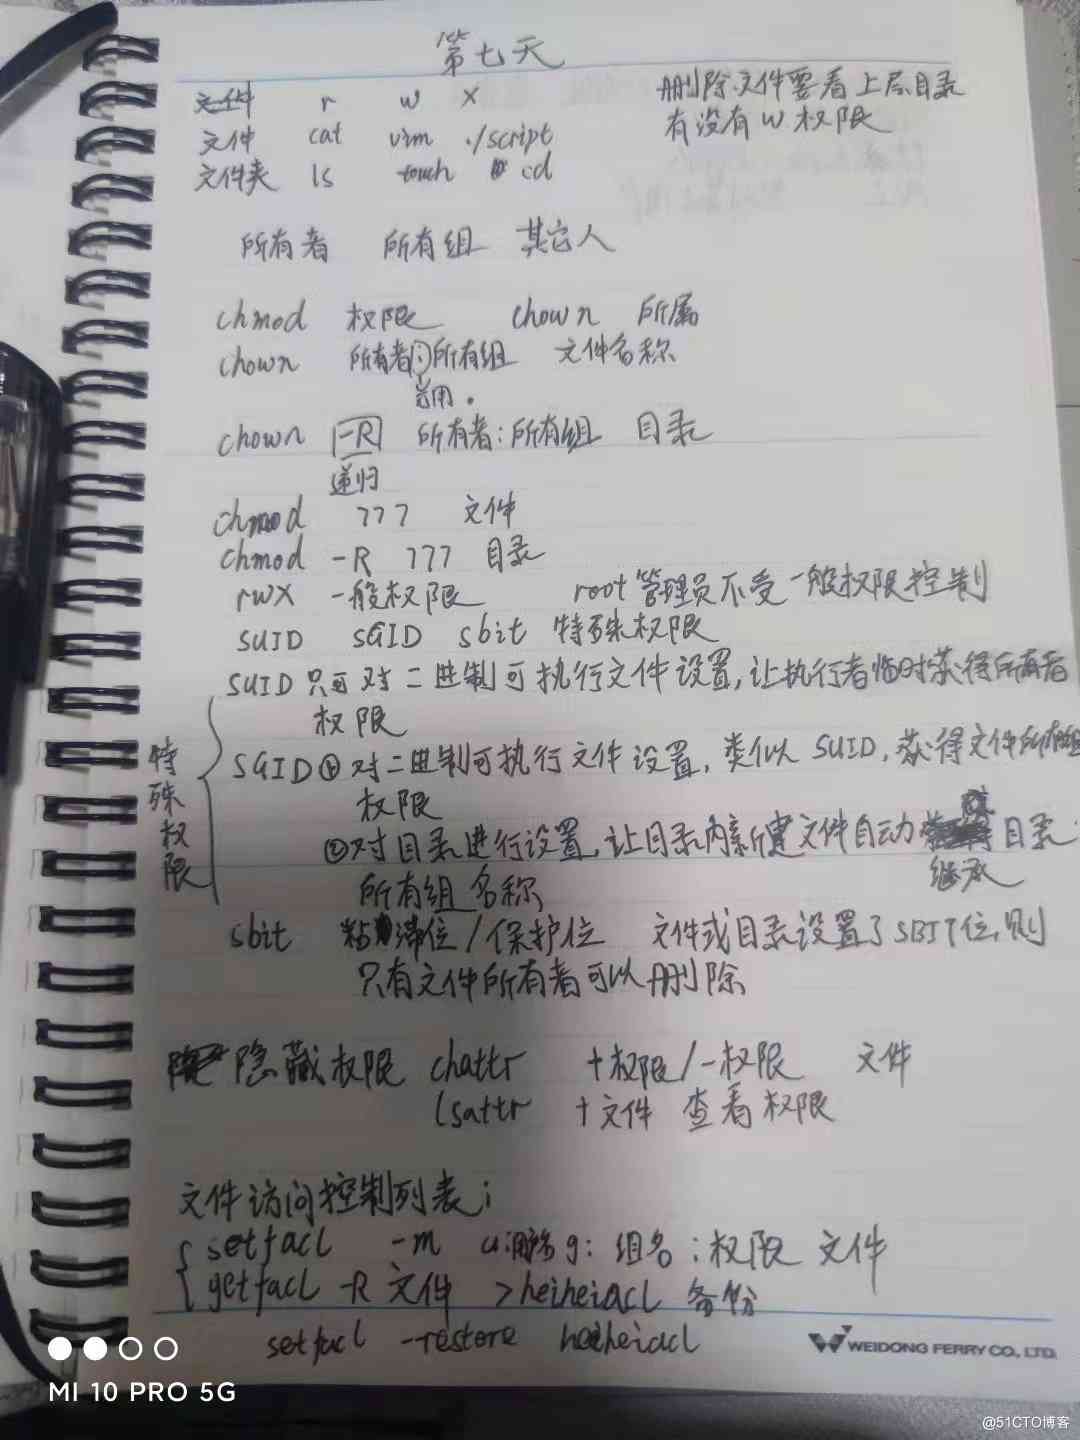 第七天
文件 r w x 删除文件要看上层目录
文件 cat vim ./script 有没有w权限
文件夹 ls touch cd
所有者 所有组 其它人
chmod 权限 chown 所属
chown 所有者:所有组 文件名称
chown -R 所有者:所有组 目录
递归
chmod 777 文件
chmod -R 777 目录
rwx 一般权限 root管理员不受一般权限控制
SUID SGID sbit 特殊权限
特殊权限
SUID只可对二进制可执行文件设置,让执行者临时获得所有者
权限
SGID①对二进制可执行文件设置,类似SUID,获得文件所有组
权限
②对目录进行设置,让目录内新建文件自动继承目录
所有组名称
sbit 粘滞位/保护位 文件或目录设置了SBIT位,则
只有文件所有者可以删除
隐藏权限 chattr +权限/-权限 文件
lsattr +文件 查看权限
文件访问控制列表:
setfacl -m u:用户名 g:组名:权限 文件
getfacl -R 文件 >heiheiacl 备份
setfacl -restore heiheiacl
WEIDONG FERRY CO., LTD.
MI 10 PRO 5G
@51CTO博客